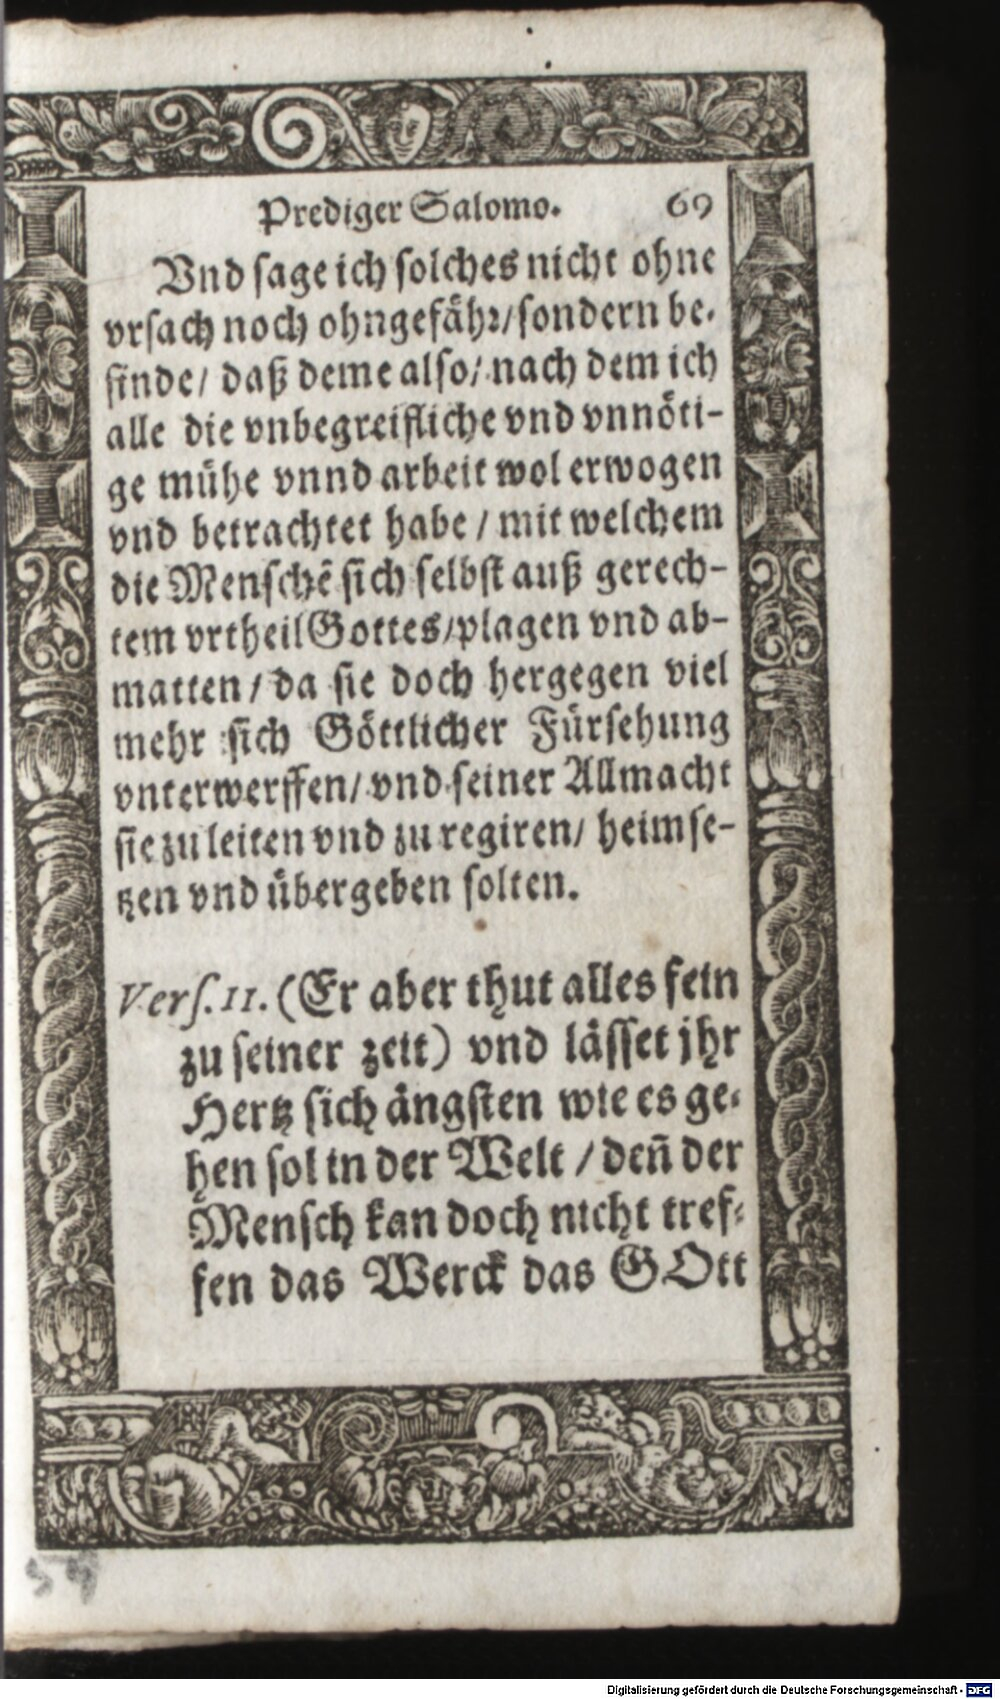 Prediger Salomo. 69
Vnd sage ich solches nicht ohne
vrsach noch ohngefähr/ sondern be-
finde/ daß deme also/ nach dem ich
alle die vnbegreifliche vnd vnnöti-
ge mühe vnnd arbeit wol erwogen
vnd betrachtet habe / mit welchem
die Menschẽ sich selbst auß gerech-
tem vrtheil Gottes/ plagen vnd ab-
matten / da sie doch hergegen viel
mehr sich Göttlicher Fürsehung
vnterwerffen/ vnd seiner Allmacht
sie zu leiten vnd zu regiren/ heimse-
tzen vnd übergeben solten.
Vers. 11. (Er aber thut alles fein
zu seiner zeit) vnd lässet jhr
Hertz sich ängsten wie es ge-
hen sol in der Welt / deñ der
Mensch kan doch nicht tref-
fen das Werck das GOtt
54
Digitalisierung gefördert durch die Deutsche Forschungsgemeinschaft - DFG